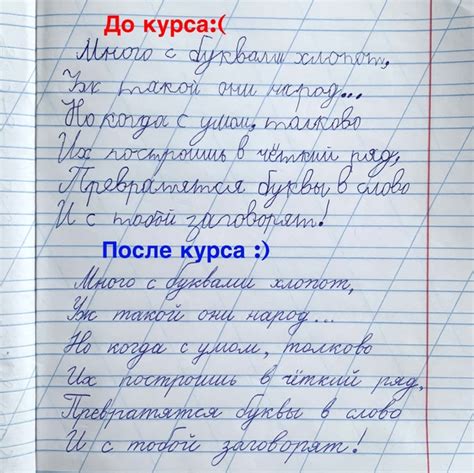 До курса:(
Много с буквами хлопот,
Уж такой они народ...
Но когда с умом, толково
Их построишь в чёткий ряд,
Превратятся буквы в слово
И с тобой заговорят!
После курса :)
Много с буквами хлопот,
Уж такой они народ...
Но когда с умом, толково
Их построишь в чёткий ряд,
Превратятся буквы в слово
И с тобой заговорят!